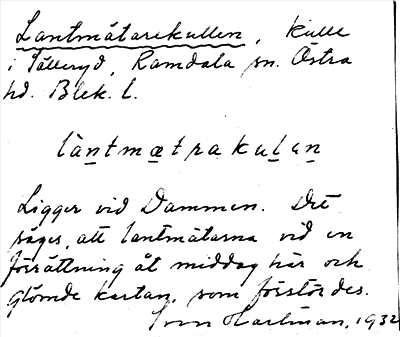 Lantmätarekullen, kulle
i Tålleryd, Ramdala sn. Östra
hd. Blek. l.
làntmætrakulen
Ligger vid Dammen. Det
säges, att lantmätarna vid en
förrättning åt middag här och
glömde kartan, som förstördes.
Sven Hartman, 1932